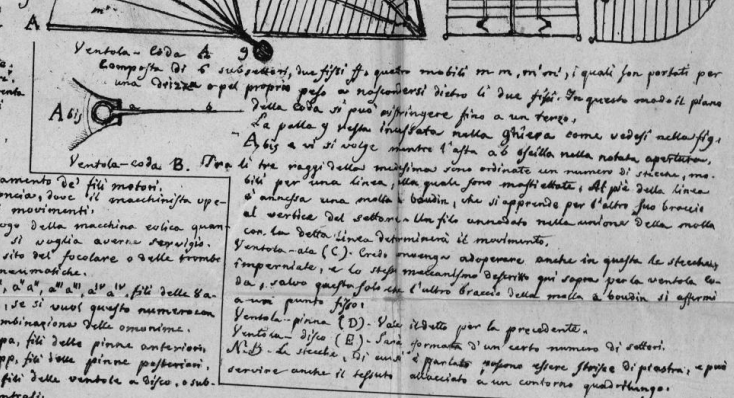 A
m'''
g
Ventola-coda A
Composta di 6 subsettori, due fissi ff, quatro mobili m m, m'm', i quali son portati per
una drizza o pel proprio peso a nascondersi dietro li due fissi. In questo modo il piano
della coda si può ristringere fino a un terzo.
La palla g resta incassata nella ghiera come vedesi nella fig.
A bis e vi si volge mentre l'asta ab oscilla nella notata apertura.
A bis
a
b
Ventola-coda B. Tra li tre raggi della medesima sono ordinate un numero di stecche, mo-
bili per una linea, alla quale sono mastiettate. Al piè della linea
è annessa una molla a boudin, che si apprende per l'altro suo braccio
al vertice del settore. Un filo annodato nella unione della molla
con la detta linea determinerà il movimento.
Ventola-ala (C). Credo convenga adoperare anche in questa le stecche
imperniate, e lo stesso meccanismo descritto qui sopra per la ventola co-
da, salvo questo solo che l'altro braccio della molla a boudin si affermi
a un punto fisso.
Ventola-pinna (D). Vale il detto per la precedente.
Ventola-disco (E). Sarà formata d'un certo numero di settori.
N.B. Le stecche, di cui si è parlato, possono essere strisce di piastra, e può
servire anche il tessuto allacciato a un contorno quadrilungo.
amento de' fili motori.
oncia, dove il macchinista ope-
movimenti.
ogo della macchina eolica quan-
si voglia averne servigio.
sito del focolare o delle trombe
neumatiche.
, a'a'', a'' a''', a''' a'''', fili delle va-
, se si vuol questo numero con
mbinazione delle omonime.
pa, fili delle pinne anteriori.
pp, fili delle pinne posteriori.
fili delle ventole a disco, o sub-